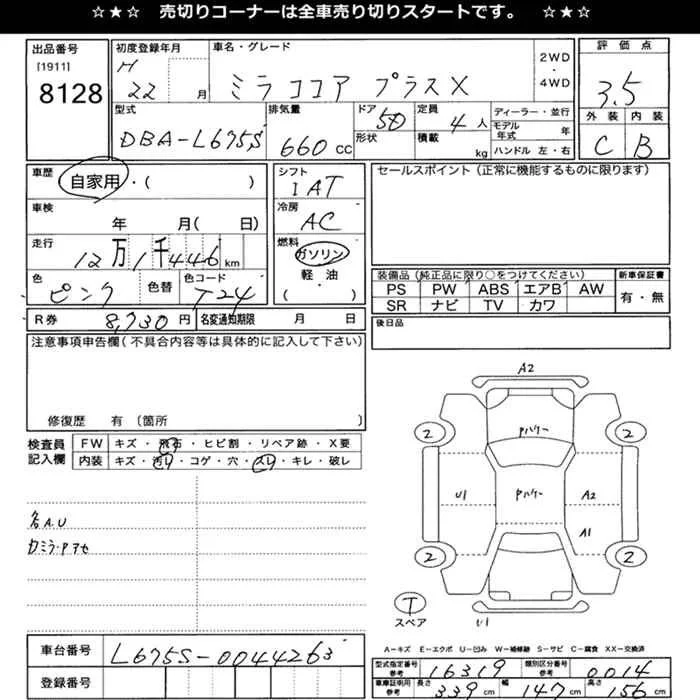 ☆★☆ 売切りコーナーは全車売り切りスタートです。 ☆★☆
出品番号
[1911]
8128
初度登録年月
H
22 月
車名・グレード
ミラココア プラスX
2WD
・
4WD
評価点
3.5
外装 内装
C B
型式
DBA-L675S
排気量
660 cc
ドア 5D
形状
定員 4 人
積載 kg
ディーラー・並行
モデル年式 年
ハンドル 左・右
車歴 自家用・( )
車検 年 月( 日)
走行 12万1千446 km
色 ピンク 色替 色コード T24
シフト
IAT
冷房
AC
燃料
ガソリン
軽・油
・( )
セールスポイント(正常に機能するものに限ります)
装備品(純正品に限り○をつけてください)
PS PW ABS エアB AW
SR ナビ TV カワ
新車保証書
有・無
R券 8,730 円 名変通知期限 月 日
後日品
注意事項申告欄(不具合内容等は具体的に記入して下さい)
修復歴 有 (箇所 )
検査員記入欄
FW キズ・飛石・ヒビ割・リペア跡・X要
内装 キズ・汚レ・コゲ・穴・スレ・キレ・破レ
各A.U
カミラ・Pアセ
A2
2 Pハゲー 2
U1 Pハゲー A2
A1
2 2
T
スペア
U1
A−キズ E−エクボ U−凹み W−補修跡 S−サビ C−腐食 XX−交換済
車台番号 L675S-0044263
登録番号
型式指定番号 参考 16319 類別区分番号 参考 0014
車庫証明用 参考 長さ 339 cm 幅 147 cm 高さ 156 cm